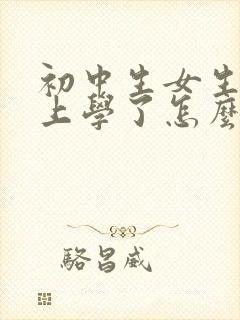 初中生女生
上學了怎麼
駱昌威